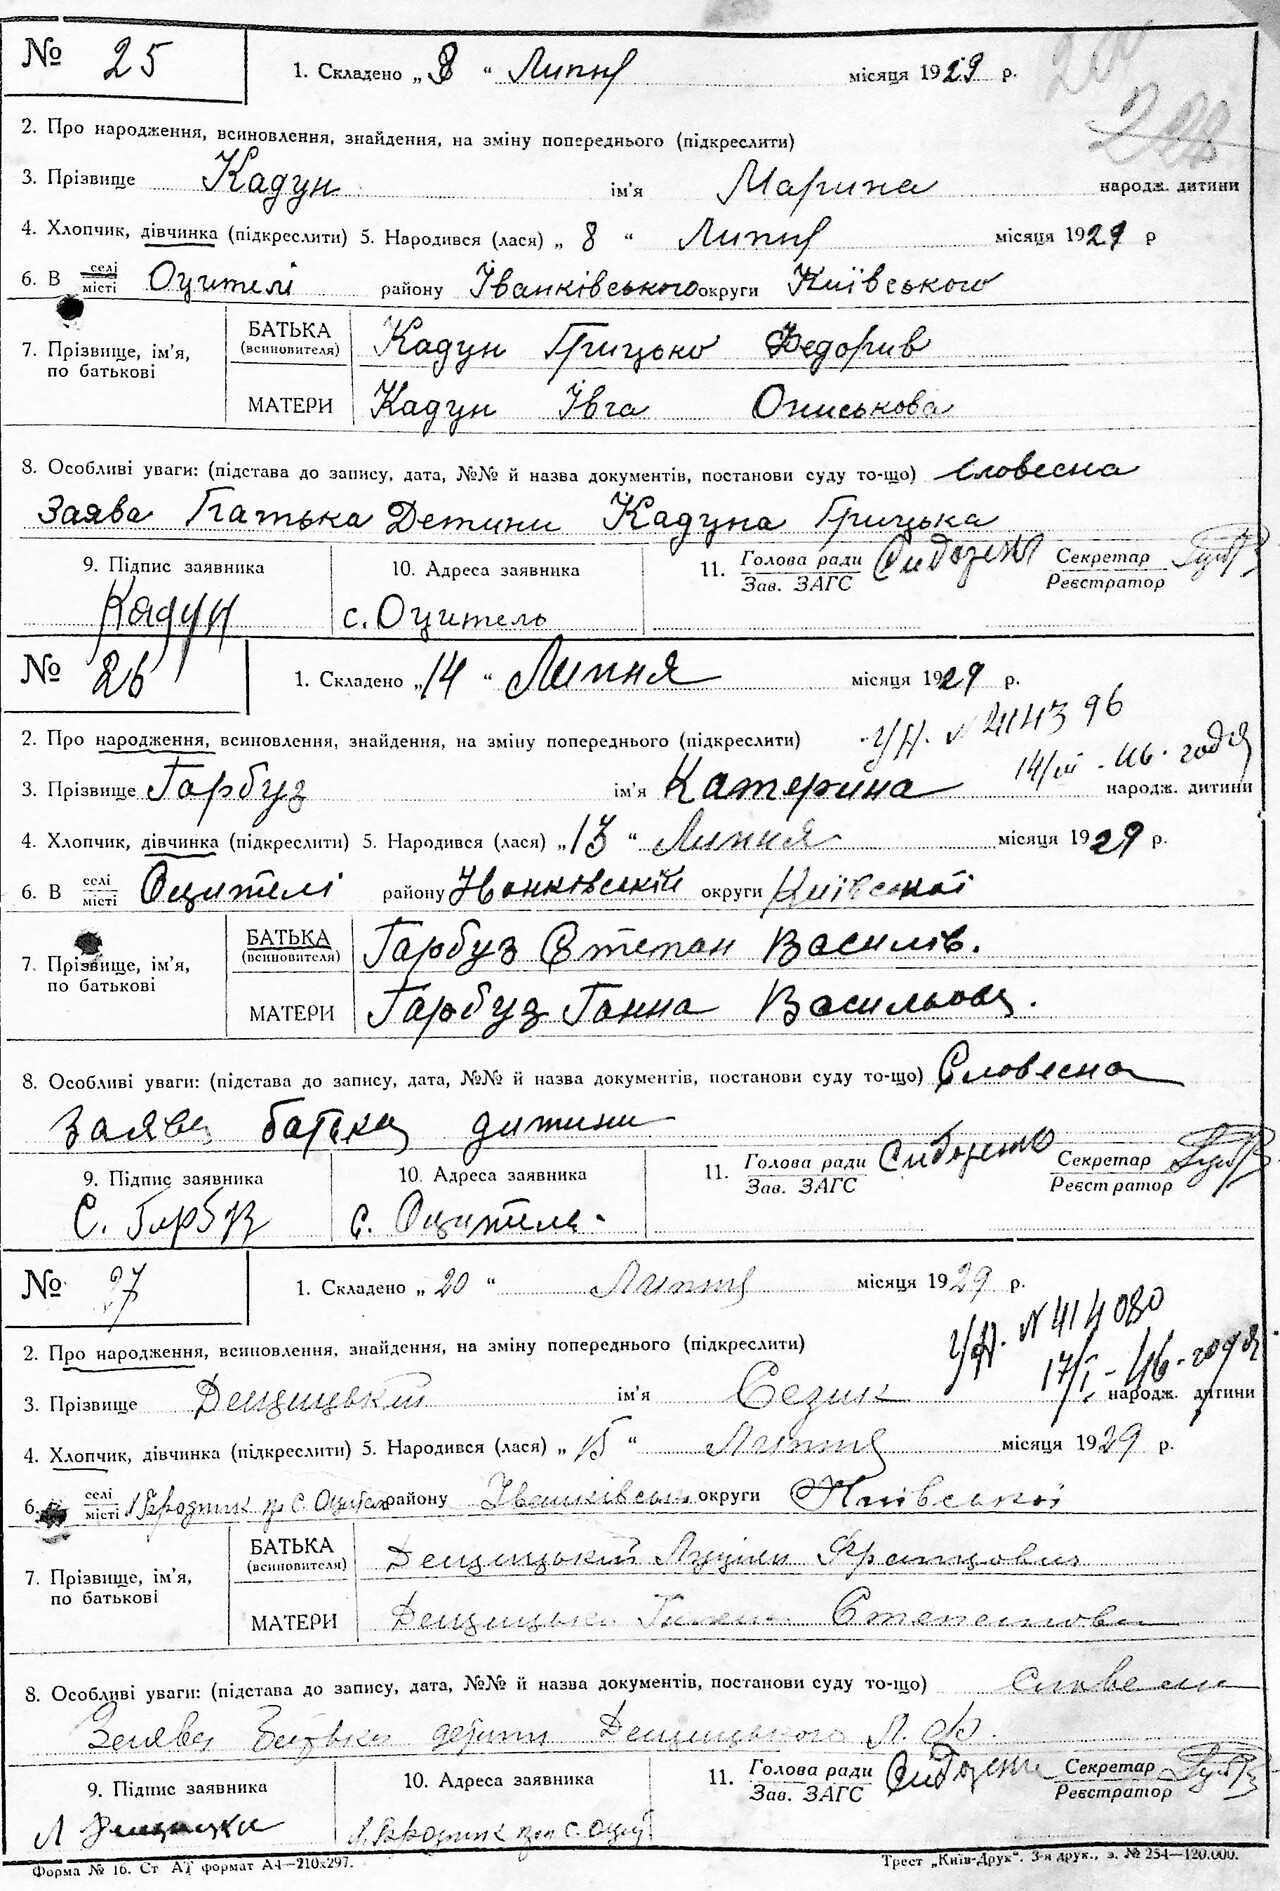 № 25 1. Складено „ 8 “ Липня місяця 1929 р.
2. Про народження, всиновлення, знайдення, на зміну попереднього (підкреслити)
3. Прізвище Кадун ім'я Марина народж. дитини
4. Хлопчик, дівчинка (підкреслити) 5. Народився (лася) „ 8 “ Липня місяця 1929 р
6. В селі місті Оцителі району Іванківського округи Київського
7. Прізвище, ім'я, по батькові
БАТЬКА (всиновителя) Кадун Грицько Федорив
МАТЕРИ Кадун Івга Ониськова
8. Особливі уваги: (підстава до запису, дата, №№ й назва документів, постанови суду то-що) словесна
Заява Батька Детини Кадуна Грицька
9. Підпис заявника 10. Адреса заявника 11. Голова ради Зав. ЗАГС Секретар Реєстратор
Кадун с. Оцитель
№ 26 1. Складено „ 14 “ Липня місяця 1929 р.
2. Про народження, всиновлення, знайдення, на зміну попереднього (підкреслити)
14/III - 46 - года
3. Прізвище Гарбуз ім'я Катерина народж. дитини
4. Хлопчик, дівчинка (підкреслити) 5. Народився (лася) „ 13 “ Липня місяця 1929 р.
6. В селі місті Оцителі району Іванківській округи Київської
7. Прізвище, ім'я, по батькові
БАТЬКА (всиновителя) Гарбуз Степан Василів.
МАТЕРИ Гарбуз Ганна Васильова.
8. Особливі уваги: (підстава до запису, дата, №№ й назва документів, постанови суду то-що) Словесна
Заява батька дитини
9. Підпис заявника 10. Адреса заявника 11. Голова ради Зав. ЗАГС Секретар Реєстратор
С. Гарбуз с. Оцитель.
№ 27 1. Складено „ 20 “ Липня місяця 1929 р.
N 414080
2. Про народження, всиновлення, знайдення, на зміну попереднього (підкреслити)
17/I - 46 - года
3. Прізвище Дещицький ім'я Сезик народж. дитини
4. Хлопчик, дівчинка (підкреслити) 5. Народився (лася) „ 15 “ Липня місяця 1929 р.
6. селі місті с. району Іванківськ округи Київської
7. Прізвище, ім'я, по батькові
БАТЬКА (всиновителя) Дещицький
МАТЕРИ Дещицька Степанова
8. Особливі уваги: (підстава до запису, дата, №№ й назва документів, постанови суду то-що) словесна
Заява Батька Дещицького Л. Ф.
9. Підпис заявника 10. Адреса заявника 11. Голова ради Зав. ЗАГС Секретар Реєстратор
Форма № 16. Ст АТ формат А4—210х297. Трест „Київ-Друк“. 3-я друк., з. № 254—120.000.